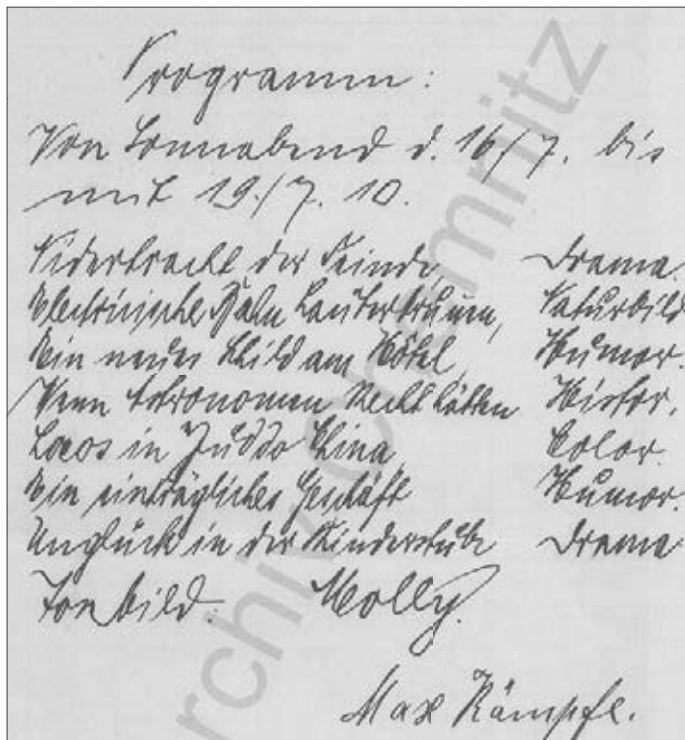 Programm:
Von Sonnabend d. 16/7. bis
mit 19./7. 10.
Nidertracht der Feinde, Drama.
Electrische Bahn Lauterbrunn, Naturbild
Ein neues Schild am Hôtel, Humor.
Wenn Astronomen Recht hätten Histor.
Laos in China Color.
Ein einträgliches Geschäft Humor.
Unglück in der Kinderstube Drama
Tonbild: Molly.
Max Kämpfe.
rchiv Chemnitz